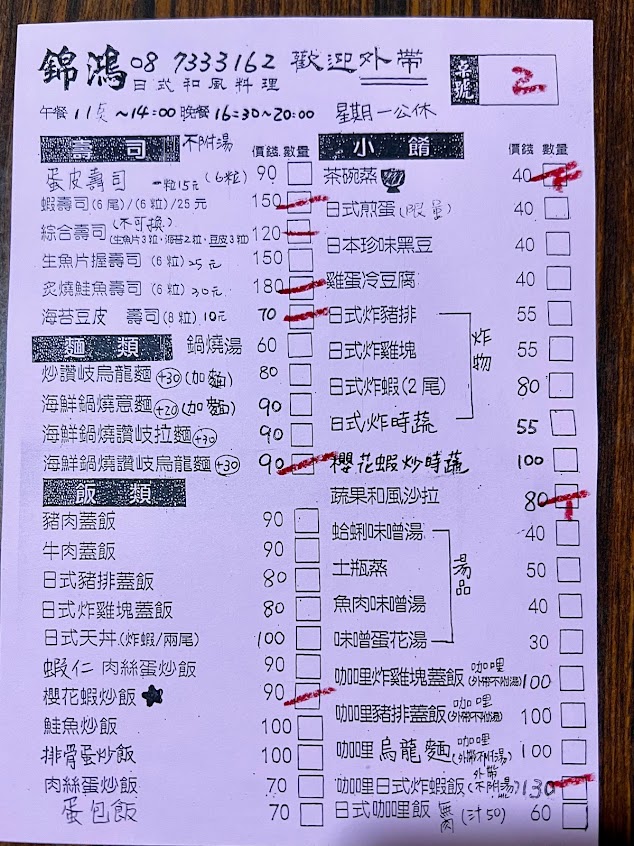 錦鴻 08 7333162 歡迎外帶
日式和風料理
桌號 2
午餐 11 ~14:00 晚餐 16:30~20:00 星期一公休
壽司 不附湯 價錢 數量
蛋皮壽司 一粒15元 (6粒) 90
蝦壽司 (6尾)/(6粒)/25元 150
綜合壽司 (不可換) (生魚片3粒、海苔2粒、豆皮3粒) 120
生魚片握壽司 (6粒) 25元 150
炙燒鮭魚壽司 (6粒) 30元 180
海苔豆皮 壽司 (8粒) 10元 70
麵類 鍋燒湯 60
炒讚岐烏龍麵 +30 (加麵) 80
海鮮鍋燒意麵 +20 (加麵) 90
海鮮鍋燒讚岐拉麵 +30 90
海鮮鍋燒讚岐烏龍麵 +30 90
飯類
豬肉蓋飯 90
牛肉蓋飯 90
日式豬排蓋飯 80
日式炸雞塊蓋飯 80
日式天丼(炸蝦/兩尾) 100
蝦仁 肉絲蛋炒飯 90
櫻花蝦炒飯 90
鮭魚炒飯 100
排骨蛋炒飯 100
肉絲蛋炒飯 70
蛋包飯 70
小餚 價錢 數量
茶碗蒸 40
日式煎蛋(限量) 40
日本珍味黑豆 40
雞蛋冷豆腐 40
日式炸豬排 55
日式炸雞塊 55
炸物
日式炸蝦(2尾) 80
日式炸時蔬 55
櫻花蝦炒時蔬 100
蔬果和風沙拉 80
蛤蜊味噌湯 40
土瓶蒸 50
湯品
魚肉味噌湯 40
味噌蛋花湯 30
咖哩炸雞塊蓋飯 咖哩(外帶不附湯) 100
咖哩豬排蓋飯 咖哩(外帶不附湯) 100
咖哩烏龍麵 咖哩(外帶不附湯) 100
咖哩日式炸蝦飯 外帶(不附湯) 130
日式咖哩飯 無肉 (汁50) 60